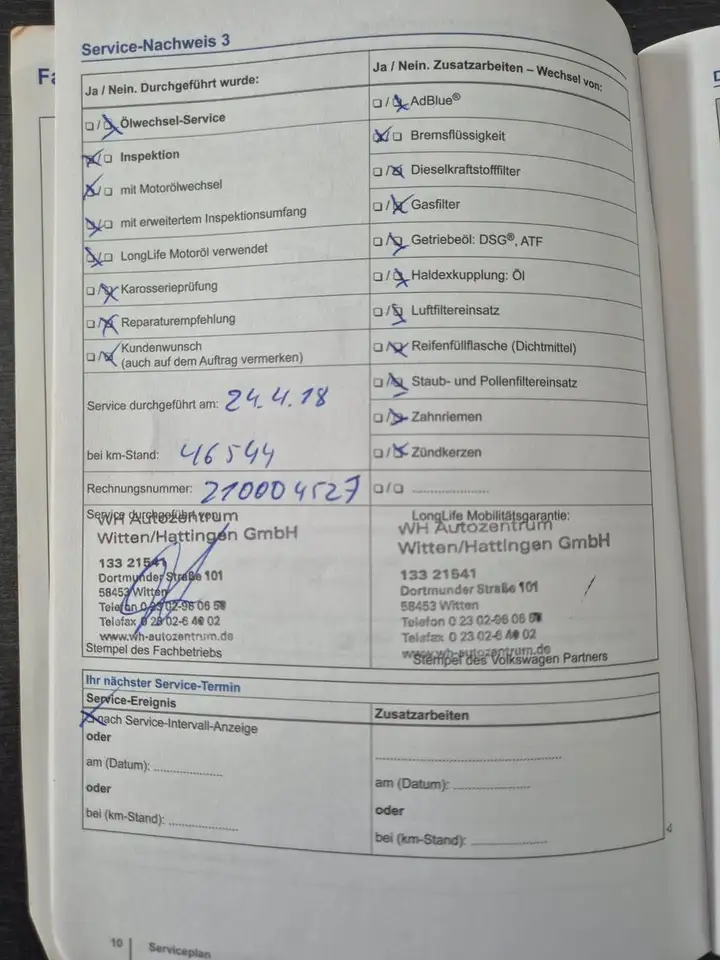 Service-Nachweis 3
Ja / Nein. Durchgeführt wurde:
Ölwechsel-Service
Inspektion
mit Motorölwechsel
mit erweitertem Inspektionsumfang
LongLife Motoröl verwendet
Karosserieprüfung
Reparaturempfehlung
Kundenwunsch
(auch auf dem Auftrag vermerken)
Service durchgeführt am: 24.4.18
bei km-Stand: 46544
Rechnungsnummer: 210004527
Service durchgeführt von:
WH Autozentrum
Witten/Hattingen GmbH
133 21541
Dortmunder Straße 101
58453 Witten
Telefon 0 23 02-96 06
Telefax 0 23 02-6 40 02
www.wh-autozentrum.de
Stempel des Fachbetriebs
Ja / Nein. Zusatzarbeiten – Wechsel von:
AdBlue®
Bremsflüssigkeit
Dieselkraftstofffilter
Gasfilter
Getriebeöl: DSG®, ATF
Haldexkupplung: Öl
Luftfiltereinsatz
Reifenfüllflasche (Dichtmittel)
Staub- und Pollenfiltereinsatz
Zahnriemen
Zündkerzen
LongLife Mobilitätsgarantie:
WH Autozentrum
Witten/Hattingen GmbH
133 21541
Dortmunder Straße 101
58453 Witten
Telefon 0 23 02-96 06
Telefax 0 23 02-6 40 02
www.wh-autozentrum.de
Stempel des Volkswagen Partners
Ihr nächster Service-Termin
Service-Ereignis
nach Service-Intervall-Anzeige
oder
am (Datum):
oder
bei (km-Stand):
Zusatzarbeiten
am (Datum):
oder
bei (km-Stand):
10 | Serviceplan